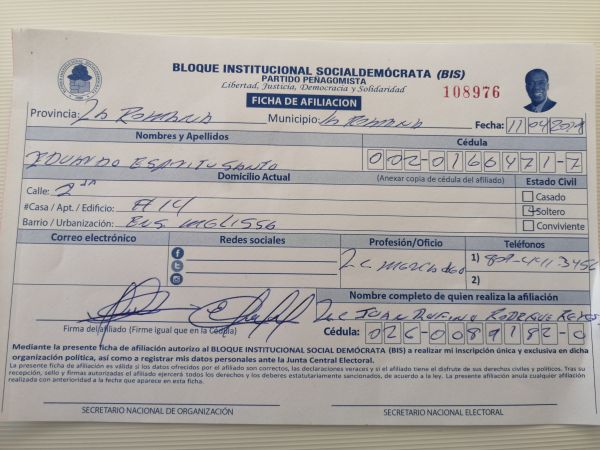 BLOQUE INSTITUCIONAL SOCIALDEMÓCRATA (BIS)
PARTIDO PEÑAGOMISTA
Libertad, Justicia, Democracia y Solidaridad
108976
FICHA DE AFILIACION
Provincia: La Romana Municipio: La Romana Fecha: 11/04/2021
Nombres y Apellidos Cédula
Eduardo Espiritusanto 002-0166471-7
Domicilio Actual (Anexar copia de cédula del afiliado) Estado Civil
Calle: 2da
Casado
#Casa / Apt. / Edificio: #14
Soltero
Barrio / Urbanización:
Conviviente
Correo electrónico Redes sociales Profesión/Oficio Teléfonos
1)
2)
Nombre completo de quien realiza la afiliación
Lic Juan Rufino Rodriguez Reyes
Firma del afiliado (Firme igual que en la Cédula) Cédula: 026-0089182-0
Mediante la presente ficha de afiliación autorizo al BLOQUE INSTITUCIONAL SOCIAL DEMÓCRATA (BIS) a realizar mi inscripción única y exclusiva en dicha
organización política, así como a registrar mis datos personales ante la Junta Central Electoral.
La presente ficha de afiliación es válida si los datos ofrecidos por el afiliado son correctos, las declaraciones veraces y si el afiliado tiene el disfrute de sus derechos civiles y políticos. Tras su
recepción, sello y firmas autorizadas el afiliado ejercerá todos los derechos y los deberes estatutariamente sancionados, de acuerdo a la ley. La presente afiliación anula cualquier afiliación
realizada con anterioridad a la fecha que aparece en esta ficha.
SECRETARIO NACIONAL DE ORGANIZACIÓN SECRETARIO NACIONAL ELECTORAL